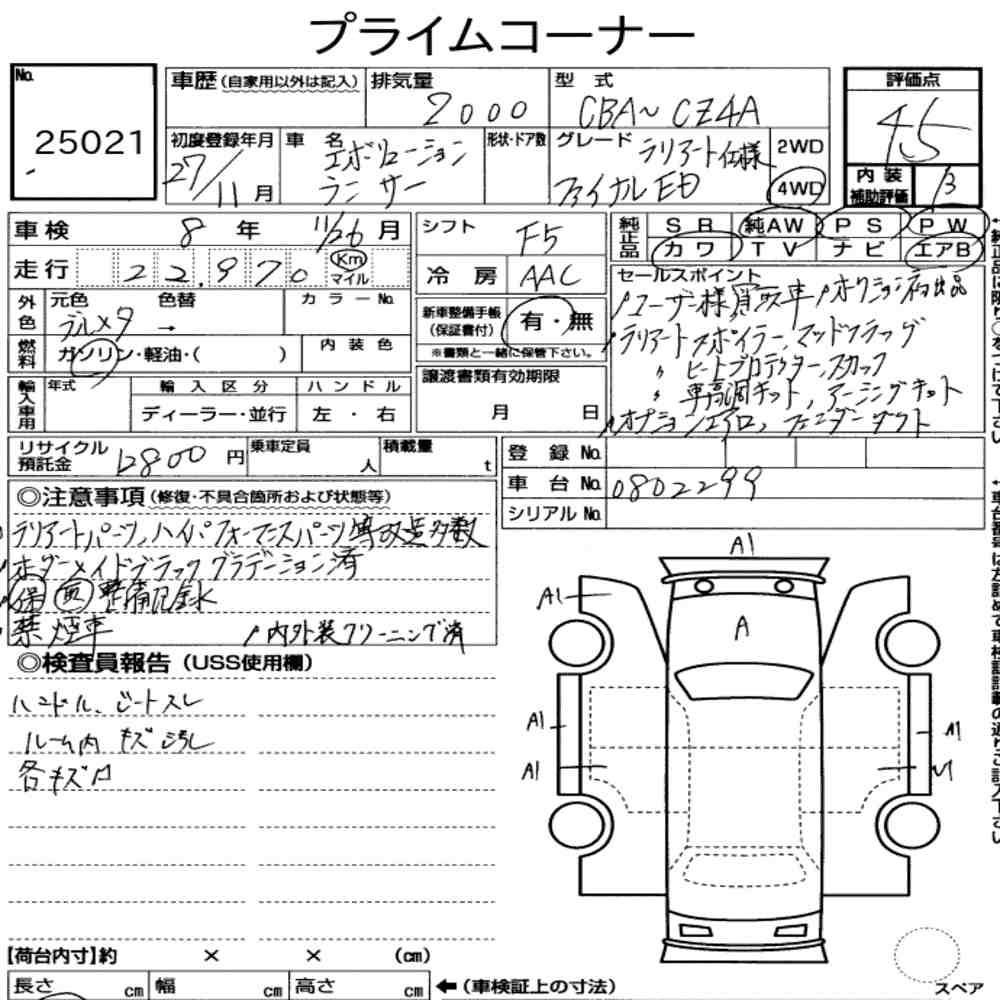 プライムコーナー
No. 25021
車歴 (自家用以外は記入)
排気量 2000
型式 CBA~CZ4A
評価点 4.5
初度登録年月 27/11月
車名 エボリューション
ランサー
形状・ドア数
グレード ラリアート仕様
ファイナルED
2WD
4WD
内装補助評価 B
車検 8年 11/26月
走行 22,970 Km マイル
シフト F5
冷房 AAC
純正品 SR 純AW PS PW
カワ TV ナビ エアB
外色 元色 色替 カラーNo.
ブルメタ →
燃料 ガソリン・軽油・( )
内装色
新車整備手帳(保証書付) 有・無
※書類と一緒に保管下さい。
セールスポイント
ユーザー様買取車 オークション初出品
ラリアートスポイラー、マッドフラップ
〃 ヒートプロテクター、スカッフ
〃 車高調キット、アーシングキット
オプションエアロ、フェンダーダクト
輸入車用 年式 輸入区分 ハンドル
ディーラー・並行 左・右
譲渡書類有効期限
月 日
リサイクル預託金 12800円
乗車定員 人
積載量 t
登録No.
車台No. 0802299
シリアルNo.
◎注意事項 (修復・不具合箇所および状態等)
ラリアートパーツ、ハイパフォーマンスパーツ等改造多数
オーダーメイドブラックグラデーション済
保 取 整備記録
禁煙車 内外装クリーニング済
◎検査員報告 (USS使用欄)
ハンドル、シートスレ
ルーム内 キズ 汚れ
各キズ
A1
A1
A
A1
A1
A1
【荷台内寸】約 × × (cm)
長さ cm 幅 cm 高さ cm
←(車検証上の寸法)
スペア